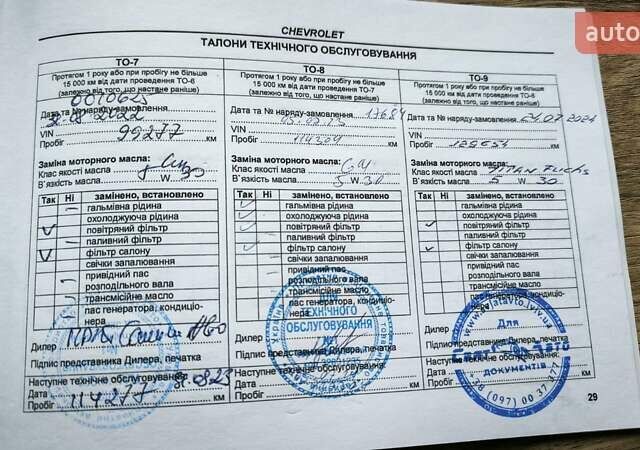 auto
CHEVROLET
ТАЛОНИ ТЕХНІЧНОГО ОБСЛУГОВУВАННЯ
ТО-7
Протягом 1 року або при пробігу не більше
15 000 км від дати проведення ТО-6
(залежно від того, що настане раніше)
0010625
Дата та № наряду-замовлення
2022
VIN
Пробіг 99277 км
Заміна моторного масла:
Клас якості масла
В`язкість масла W 30
Так Ні замінено, встановлено
гальмівна рідина
охолоджуюча рідина
повітряний фільтр
паливний фільтр
фільтр салону
свічки запалювання
привідний пас
розподільного вала
трансмісійне масло
пас генератора, кондиціо-
нера
Дилер
Підпис представника Дилера, печатка
Наступне технічне обслуговування:
Дата 08.23
Пробіг 114277 км
ТО-8
Протягом 1 року або при пробігу не більше
15 000 км від дати проведення ТО-7
(залежно від того, що настане раніше)
Дата та № наряду-замовлення 17684
VIN
Пробіг 114304 км
Заміна моторного масла:
Клас якості масла
В`язкість масла 5 W 30
Так Ні замінено, встановлено
гальмівна рідина
охолоджуюча рідина
повітряний фільтр
паливний фільтр
фільтр салону
свічки запалювання
привідний пас
розподільного вала
трансмісійне масло
пас генератора, кондиціо-
нера
ТЕХНІЧНОГО
ОБСЛУГОВУВАННЯ
Дилер
Підпис представника Дилера, печатка
Наступне технічне обслуговування:
Дата
Пробіг км
ТО-9
Протягом 1 року або при пробігу не більше
15 000 км від дати проведення ТО-8
(залежно від того, що настане раніше)
Дата та № наряду-замовлення
24.07 2024
VIN
Пробіг км
Заміна моторного масла:
Клас якості масла TITAN FUCHS
В`язкість масла 5 W 30
Так Ні замінено, встановлено
гальмівна рідина
охолоджуюча рідина
повітряний фільтр
паливний фільтр
фільтр салону
свічки запалювання
привідний пас
розподільного вала
трансмісійне масло
пас генератора, кондиціо-
нера
Для
ДОКУМЕНТІВ
Дилер
Підпис представника Дилера, печатка
Наступне технічне обслуговування:
Дата
Пробіг км
29